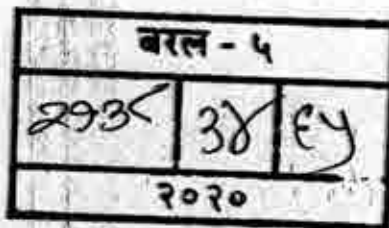 बरल - ५
२१३८ ३४ ६५
२०२०